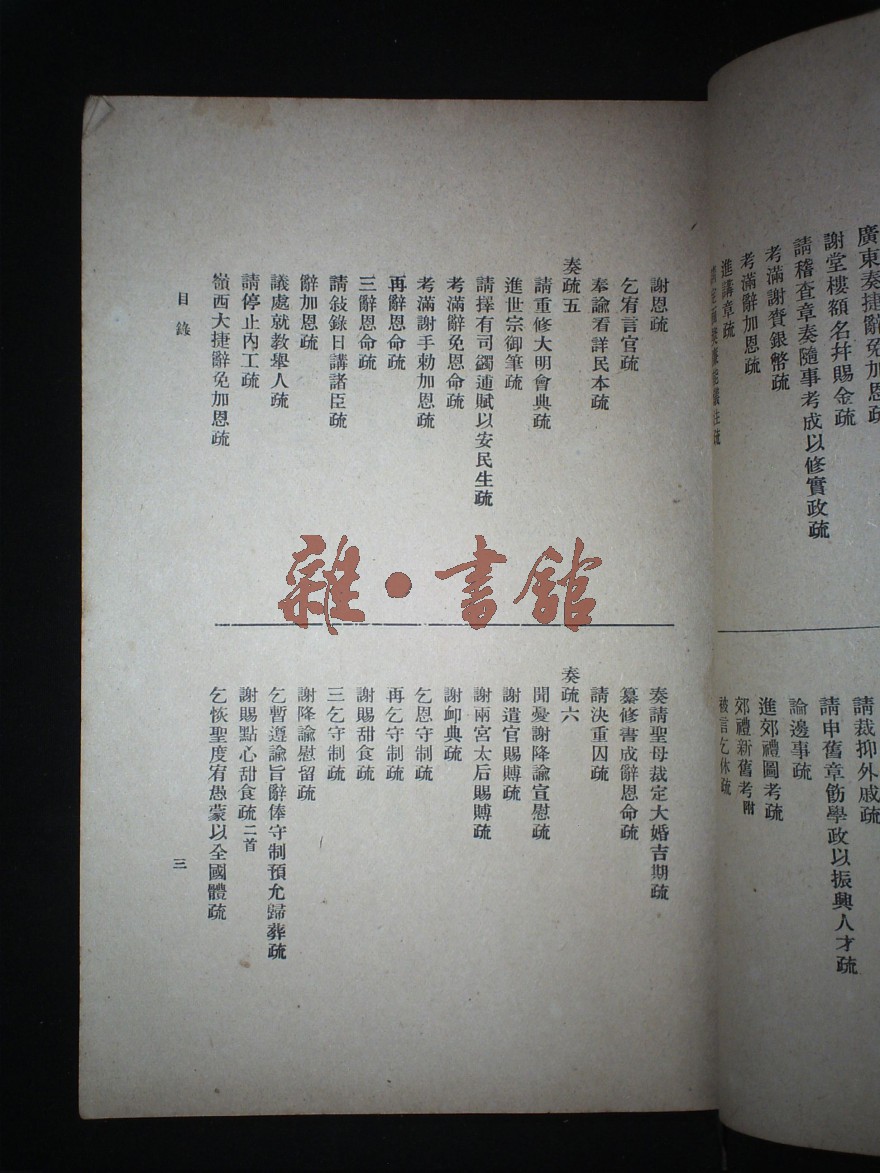 廣東奏捷辭免加恩疏
謝堂樓額名幷賜金疏
請稽查章奏隨事考成以修實政疏
考滿謝賚銀幣疏
考滿辭加恩疏
進講章疏
請裁抑外戚疏
請申舊章飭學政以振興人才疏
論邊事疏
進郊禮圖考疏
郊禮新舊考附
被言乞休疏
謝恩疏
乞宥言官疏
奉諭看詳民本疏
奏疏五
請重修大明會典疏
進世宗御筆疏
請擇有司蠲逋賦以安民生疏
考滿辭免恩命疏
考滿謝手勅加恩疏
再辭恩命疏
三辭恩命疏
請敍錄日講諸臣疏
辭加恩疏
議處就教舉人疏
請停止內工疏
嶺西大捷辭免加恩疏
奏請聖母裁定大婚吉期疏
纂修書成辭恩命疏
請決重囚疏
奏疏六
聞憂謝降諭宣慰疏
謝遣官賜賻疏
謝兩宮太后賜賻疏
謝卹典疏
乞恩守制疏
再乞守制疏
謝賜甜食疏
三乞守制疏
謝降諭慰留疏
乞暫遵諭旨辭俸守制預允歸葬疏
謝賜點心甜食疏二首
乞恢聖度宥愚蒙以全國體疏
目錄
三
雜·書館